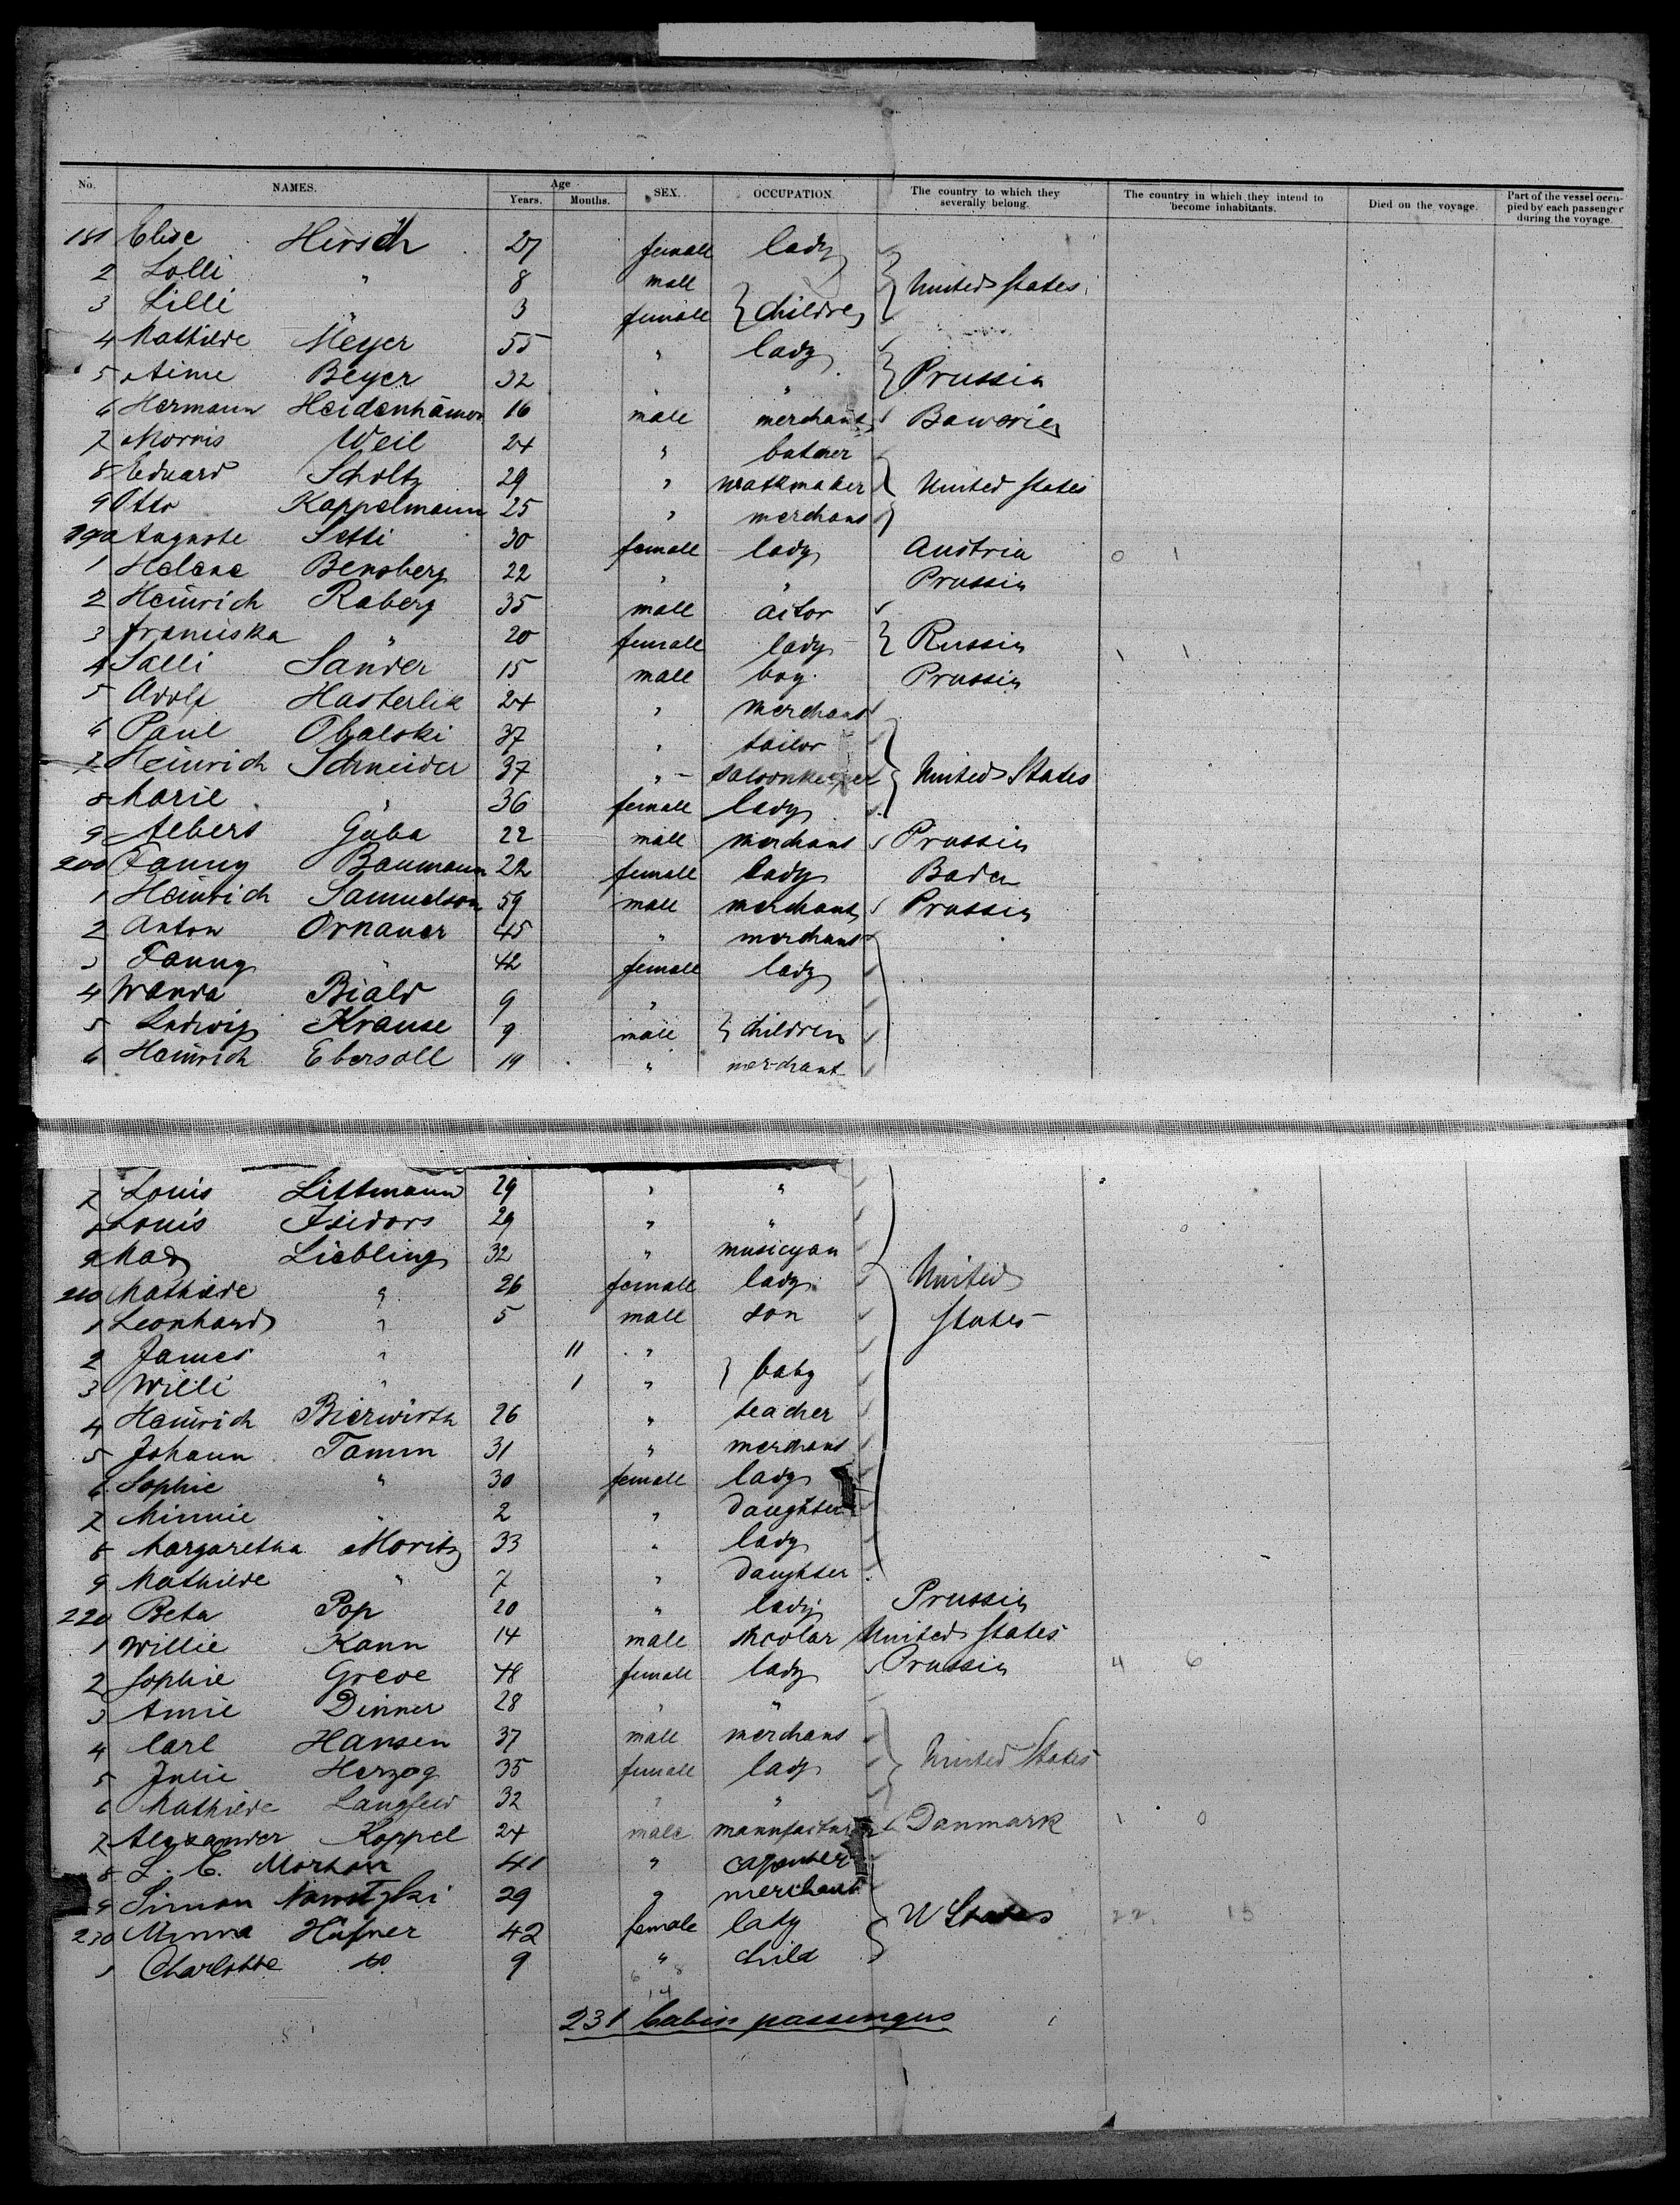 No. NAMES. Age Years. Months. SEX. OCCUPATION. The country to which they severally belong. The country in which they intend to become inhabitants. Died on the voyage. Part of the vessel occupied by each passenger during the voyage
181 Elise Hirsch 27 female lady
2 Lolli " 8 male
3 Lilli " 3 female } children } United States
4 Mathilde Meyer 55 " lady
5 Aime Beyer 32 " " } Prussia
6 Hermann 16 male merchant Baweria
7 Morris Weil 24 " butcher
8 Eduard Scholtz 29 " watkmaker } United States
9 Otto Kappelmann 25 " merchant
190 Auguste Setti 30 female lady Austria 0 1
1 Helene Bensberg 22 " " Prussia
2 Heinrich Raberg 35 male actor
3 Franciska " 20 female lady } Russia 1 1
4 Salli Sander 15 male boy Prussia
5 Adolf Hasterlik 24 " merchant
6 Paul Obalski 37 " tailor
7 Heinrich Schneider 37 " saloonkeeper } United States
8 Marie " 36 female lady
9 Albert Guba 22 male merchant Prussia
200 Fanny Baumann 22 female lady Baden
1 Heinrich Samuelson 59 male merchant Prussia
2 Anton Ornauer 45 " merchant
3 Fanny " 42 female lady
4 Wanda Biald 9 "
5 Ludwig Krause 9 male } children
6 Heinrich Ebersoll 19 " merchant
7 Louis Littmann 29 " "
8 Louis Isidors 29 " "
9 Max Liebling 32 " musicyan
210 Mathilde " 26 female lady United
1 Leonhard " 5 male son States
2 James " 11 "
3 Willi " 1 " } baby
4 Heinrich Bierwirth 26 " teacher
5 Johann Tamm 31 " merchant
6 Sophie " 30 female lady
7 Minnie " 2 " daughter
8 Margaretha Moritz 33 " lady
9 Mathilde " 7 " daughter
220 Beta Pop 20 " lady Prussia
1 Willie Kann 14 male shcolar United States
2 Sophie Greve 48 female lady Prussia 4 6
3 Amie Dinner 28 " "
4 Carl Hansen 37 male merchant
5 Julie Herzog 35 female lady } United States
6 Mathilde Langfeld 32 " "
7 Alexander Koppel 24 male manufacturer Danmark 1 0
8 L. C. Morhan 41 " capenter
9 Simon 29 " merchant
230 Minna Hüfner 42 female lady } U States 22. 15
1 Charlotte do 9 " child
6 8
14
231 Cabin passengers